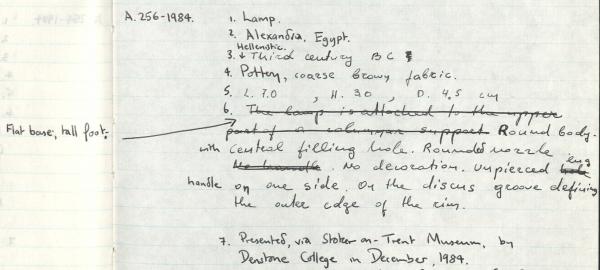 A.256-1984.
1. Lamp.
2. Alexandria, Egypt.
Hellenistic.
3. Third century BC
4. Pottery, coarse brown fabric.
5. L. 7.0 , H. 3.0 , D. 4.5 cm
6. The lamp is attached to the upper
Flat base, tall foot.
part of a columnar support Round body.
with central filling hole. Rounded nozzle
No handle. No decoration. Unpierced lug
handle on one side. On the discus groove defining
the outer edge of the rim.
7. Presented, via Stoke-on-Trent Museum, by
Denstone College in December, 1984.